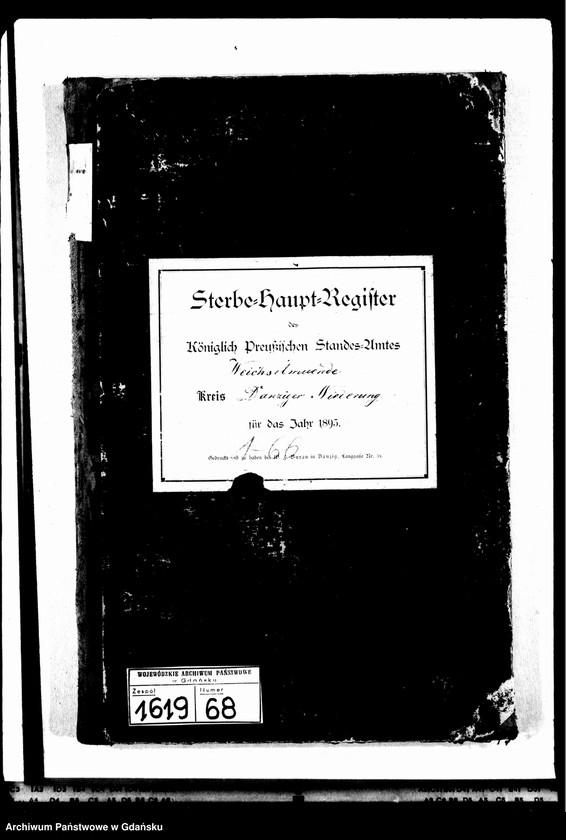 Sterbe-Haupt-Register
des
Königlich Preußischen Standes-Amtes
Weichselmuende
Kreis Danziger Niederung
für das Jahr 1895.
1-66
Gedruckt und zu haben bei in Danzig, Langgasse Nr.
WOJEWÓDZKIE ARCHIWUM PAŃSTWOWE
w Gdańsku
Zespół Numer
1619 68
Archiwum Państwowe w Gdańsku